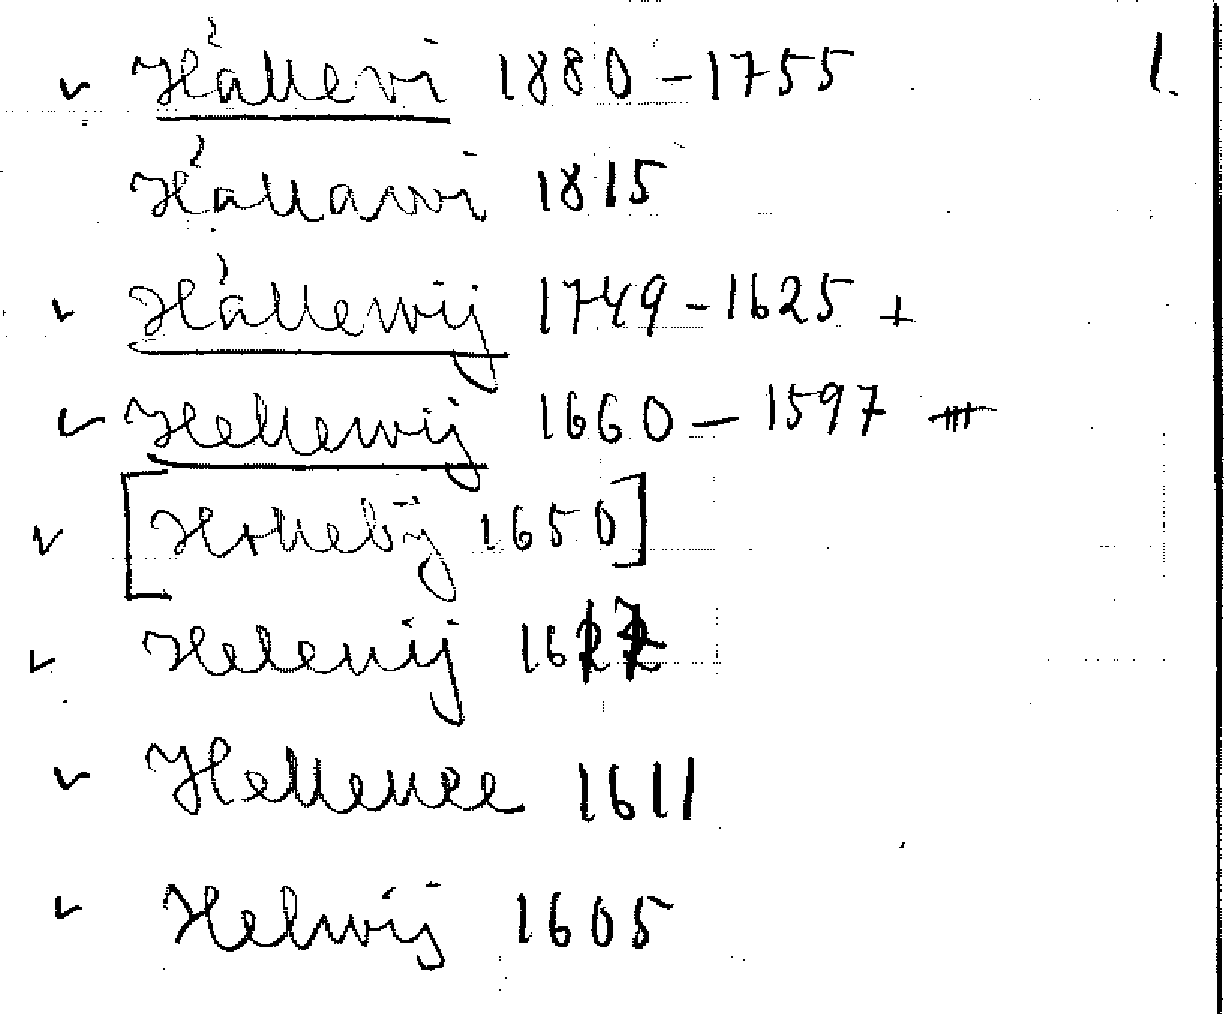 Hållevi 1880 – 1755 1.
Hållawi 1815
Hållewij 1749 – 1625 +
Hellewij 1660 – 1597
[Hollebÿ 1650]
Helewij
Hellewee 1611
Helwij 1605